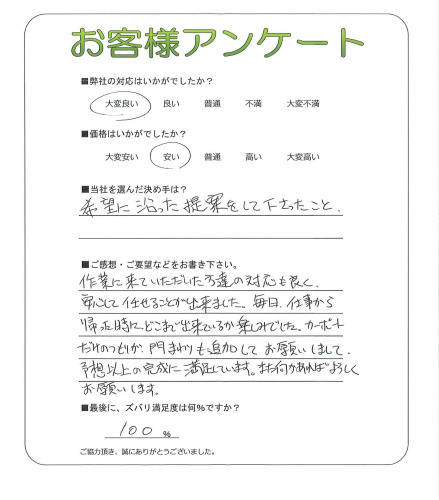 お客様アンケート
■弊社の対応はいかがでしたか？
大変良い 良い 普通 不満 大変不満
■価格はいかがでしたか？
大変安い 安い 普通 高い 大変高い
■当社を選んだ決め手は？
希望に沿った提案をして下さったこと.
■ご感想・ご要望などをお書き下さい。
作業に来ていただいた方達の対応も良く、
安心して任せることが出来ました。毎日、仕事から
帰った時に、どこまで出来ているか楽しみでした。カーポート
だけのつもりが、門まわりも追加してお願いしまして、
予想以上の完成に満足しています。また何かあればよろしく
お願いします。
■最後に、ズバリ満足度は何％ですか？
100 %
ご協力頂き、誠にありがとうございました。